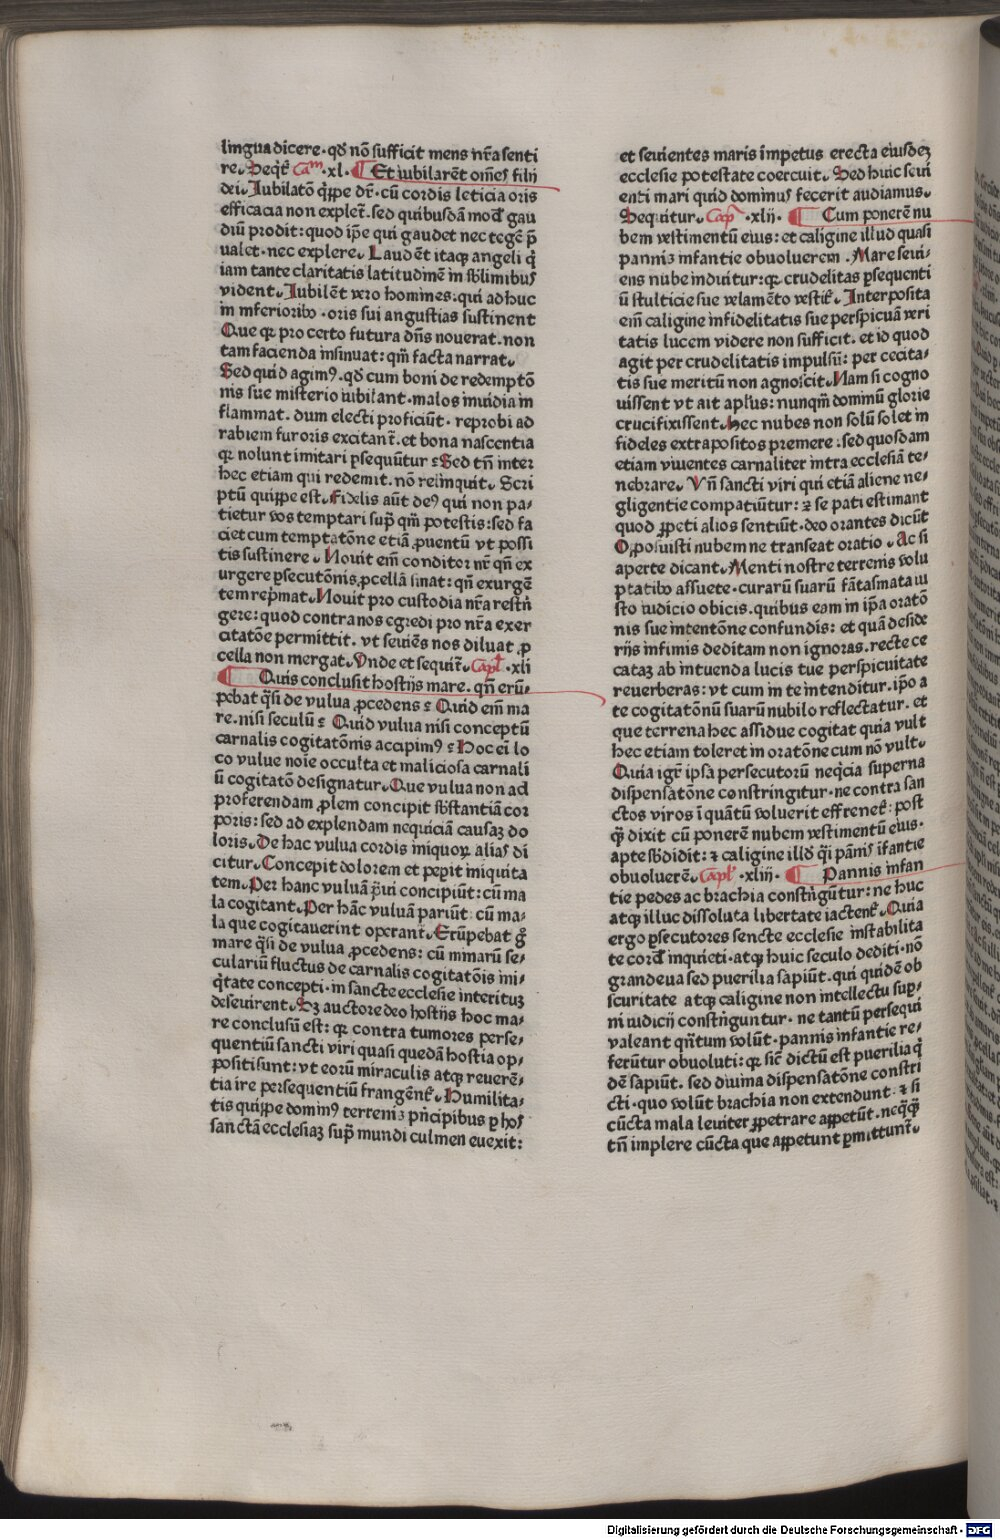 lingua dicere·qđ nō sufficit mens nr̄a senti
re. Seqt̉ Cam̄·xl· Et iubilarēt om̄es filij
dei. Jubilatō q̉ppe dr̄·cū cordis leticia oris
efficacia non explet̄. sed quibusdā mod̉ gau
diū prodit: quod ip̄e qui gaudet nec tegē p̄
ualet· nec explere. Laudēt itaq̨ angeli q̉
iam tante claritatis latitudinē in sb̄limibus
vident. Jubilēt vero homines: qui ad huc
in inferioribꝰ·oris sui angustias sustinent
Que qꝛ pro certo futura dn̄s nouerat. non
tam facienda insinuat: qm̄ facta narrat.
Sed quid agimꝰ. qđ cum boni de redemptō
nis sue misterio iubilant. malos inuidia in
flammat. dum electi proficiūt· reprobi ad
rabiem furoris excitant̄. et bona nascentia
qꝛ nolunt imitari ꝑsequūtur: Sed tn̄ inter
hec etiam qui redemit. nō relinquit. Scri
ptū quippe est. Fidelis aūt deꝰ qui non pa-
tietur vos temptari sup̄ qm̄ potestis: sed fa
ciet cum temptatōne etiā ꝓuentū vt possi
tis sustinere. Nouit em̄ conditor nr̄ qn̄ ex
urgere ꝑsecutōnis ꝓcellā sinat: qn̄ exurgē
tem rep̄mat. Nouit pro custodia nr̄a restrī
gere: quod contra nos egredi pro nr̄a exer
citatōe permittit. vt seuiēs nos diluat ꝓ
cella non mergat. Vnde et sequit̄. Capl̄·xli
Quis conclusit hostijs mare. qn̄ erū-
pebat q̉si de vulua ꝓcedens: Quid em̄ ma
re. nisi seculū: Quid vulua nisi conceptū
carnalis cogitatōnis accipimꝰ: Hoc ei̅ lo
co vulue noīe occulta et maliciosa carnali
ū cogitatō designatur. Que vulua non ad
proferendam ꝓlem concipit sb̄stantiā cor
poris: sed ad explendam nequiciā causaȝ do
loris. De hac vulua cordis iniquoꝝ alias di
citur. Concepit dolorem et peꝑit iniquita
tem. Per hanc vuluā p̄ui concipiūt: cū ma
la cogitant. Per hāc vuluā pariūt: cū ma-
la que cogitauerint operant̄. Erūpebat g̊
mare q̉si de vulua ꝓcedens: cū minarū se-
culariū fluctus de carnalis cogitatōis ini-
q̉tate concepti·in sancte ecclesie interituȝ
deseuirent. Sȝ auctore deo hostijs hoc ma-
re conclusū est: qꝛ contra tumores perse-
quentiū sancti viri quasi quedā hostia op-
positi sunt: vt eorū miraculis atq̨ reuerē-
tia ire persequentiū frangēnt̉. Humilita-
tis quippe dominꝰ terrenis pn̉cipibus ꝑ hos
sanctā ecclesiaȝ sup̄ mundi culmen euexit:
et seuientes maris impetus erecta eiusdeȝ
ecclesie potestate coercuit. Sed huic seui
enti mari quid dominus fecerit audiamus.
Sequitur. Cap̄·xlij· Cum ponerē nu
bem vestimentū eius: et caligine illud quasi
pannis infantie obuoluerem. Mare seui-
ens nube induitur: qꝛ crudelitas ꝑsequenti
ū stulticie sue velamēto vestit̉. Interposita
em̄ caligine infidelitatis sue perspicuā veri
tatis lucem videre non sufficit. et id quod
agit per crudelitatis impulsū: per cecita-
tis sue meritū non agnoscit. Nam si cogno
uissent vt ait apl̄us: nunqm̄ dominū glorie
crucifixissent. Hec nubes non solū solet in
fideles extra positos premere: sed quosdam
etiam viuentes carnaliter intra ecclesiā te-
nebrare. Vn̄ sancti viri qui etiā aliene ne-
gligentie compatiūtur: ⁊ se pati estimant
quod ꝑpeti alios sentiūt·deo orantes dicūt
Opposuisti nubem ne transeat oratio. Ac si
aperte dicant. Menti nostre terrenis volu
ptatibꝰ assuete·curarū suarū fātasmata iu
sto iudicio obicis. quibus eam in ip̄a oratō
nis sue intentōne confundis: et quā deside
rijs infimis deditam non ignoras. recte ce
cataȝ ab intuenda lucis tue perspicuitate
reuerberas: vt cum in te intenditur. ip̄o a
te cogitatōnū suarū nubilo reflectatur. et
que terrena hec assidue cogitat quia vult
hec etiam toleret in oratōne cum nō vult.
Quia igr̄ ipsa persecutorū neq̉cia superna
dispensatōne constringitur·ne contra san
ctos viros i̅ quātū voluerit effrenet̉: post
q̃ dixit cū ponerē nubem vestimentū eius·
apte sb̄didit: ⁊ caligine illđ q̉i pān̉s ifantie
obuoluerē. Capl̄·xliij· Pannis infan
tie pedes ac brachia constri̅gūtur: ne huc
atq̨ illuc dissoluta libertate iactent̉. Quia
ergo ꝑsecutores sencte ecclesie instabilita
te cord̉ inquieti·atq̨ huic seculo dediti·nō
grandeua sed puerilia sapiūt. qui quidē ob
scuritate atq̨ caligine non intellectu sup̲-
ni iudicij constri̅guntur·ne tantū persequi
valeant qn̉tum volūt·pannis infantie re-
ferūtur obuoluti: qꝛ sic̄ dictū est puerilia q̉
dē sapiūt. sed diuina dispensatōne constri
cti·quo volūt brachia non extendunt·⁊ si
cūcta mala leuiter ꝑpetrare appetūt. neq̃q̃
tn̄ implere cūcta que appetunt ꝑmittunt̄.
Digitalisierung gefördert durch die Deutsche Forschungsgemeinschaft - DFG